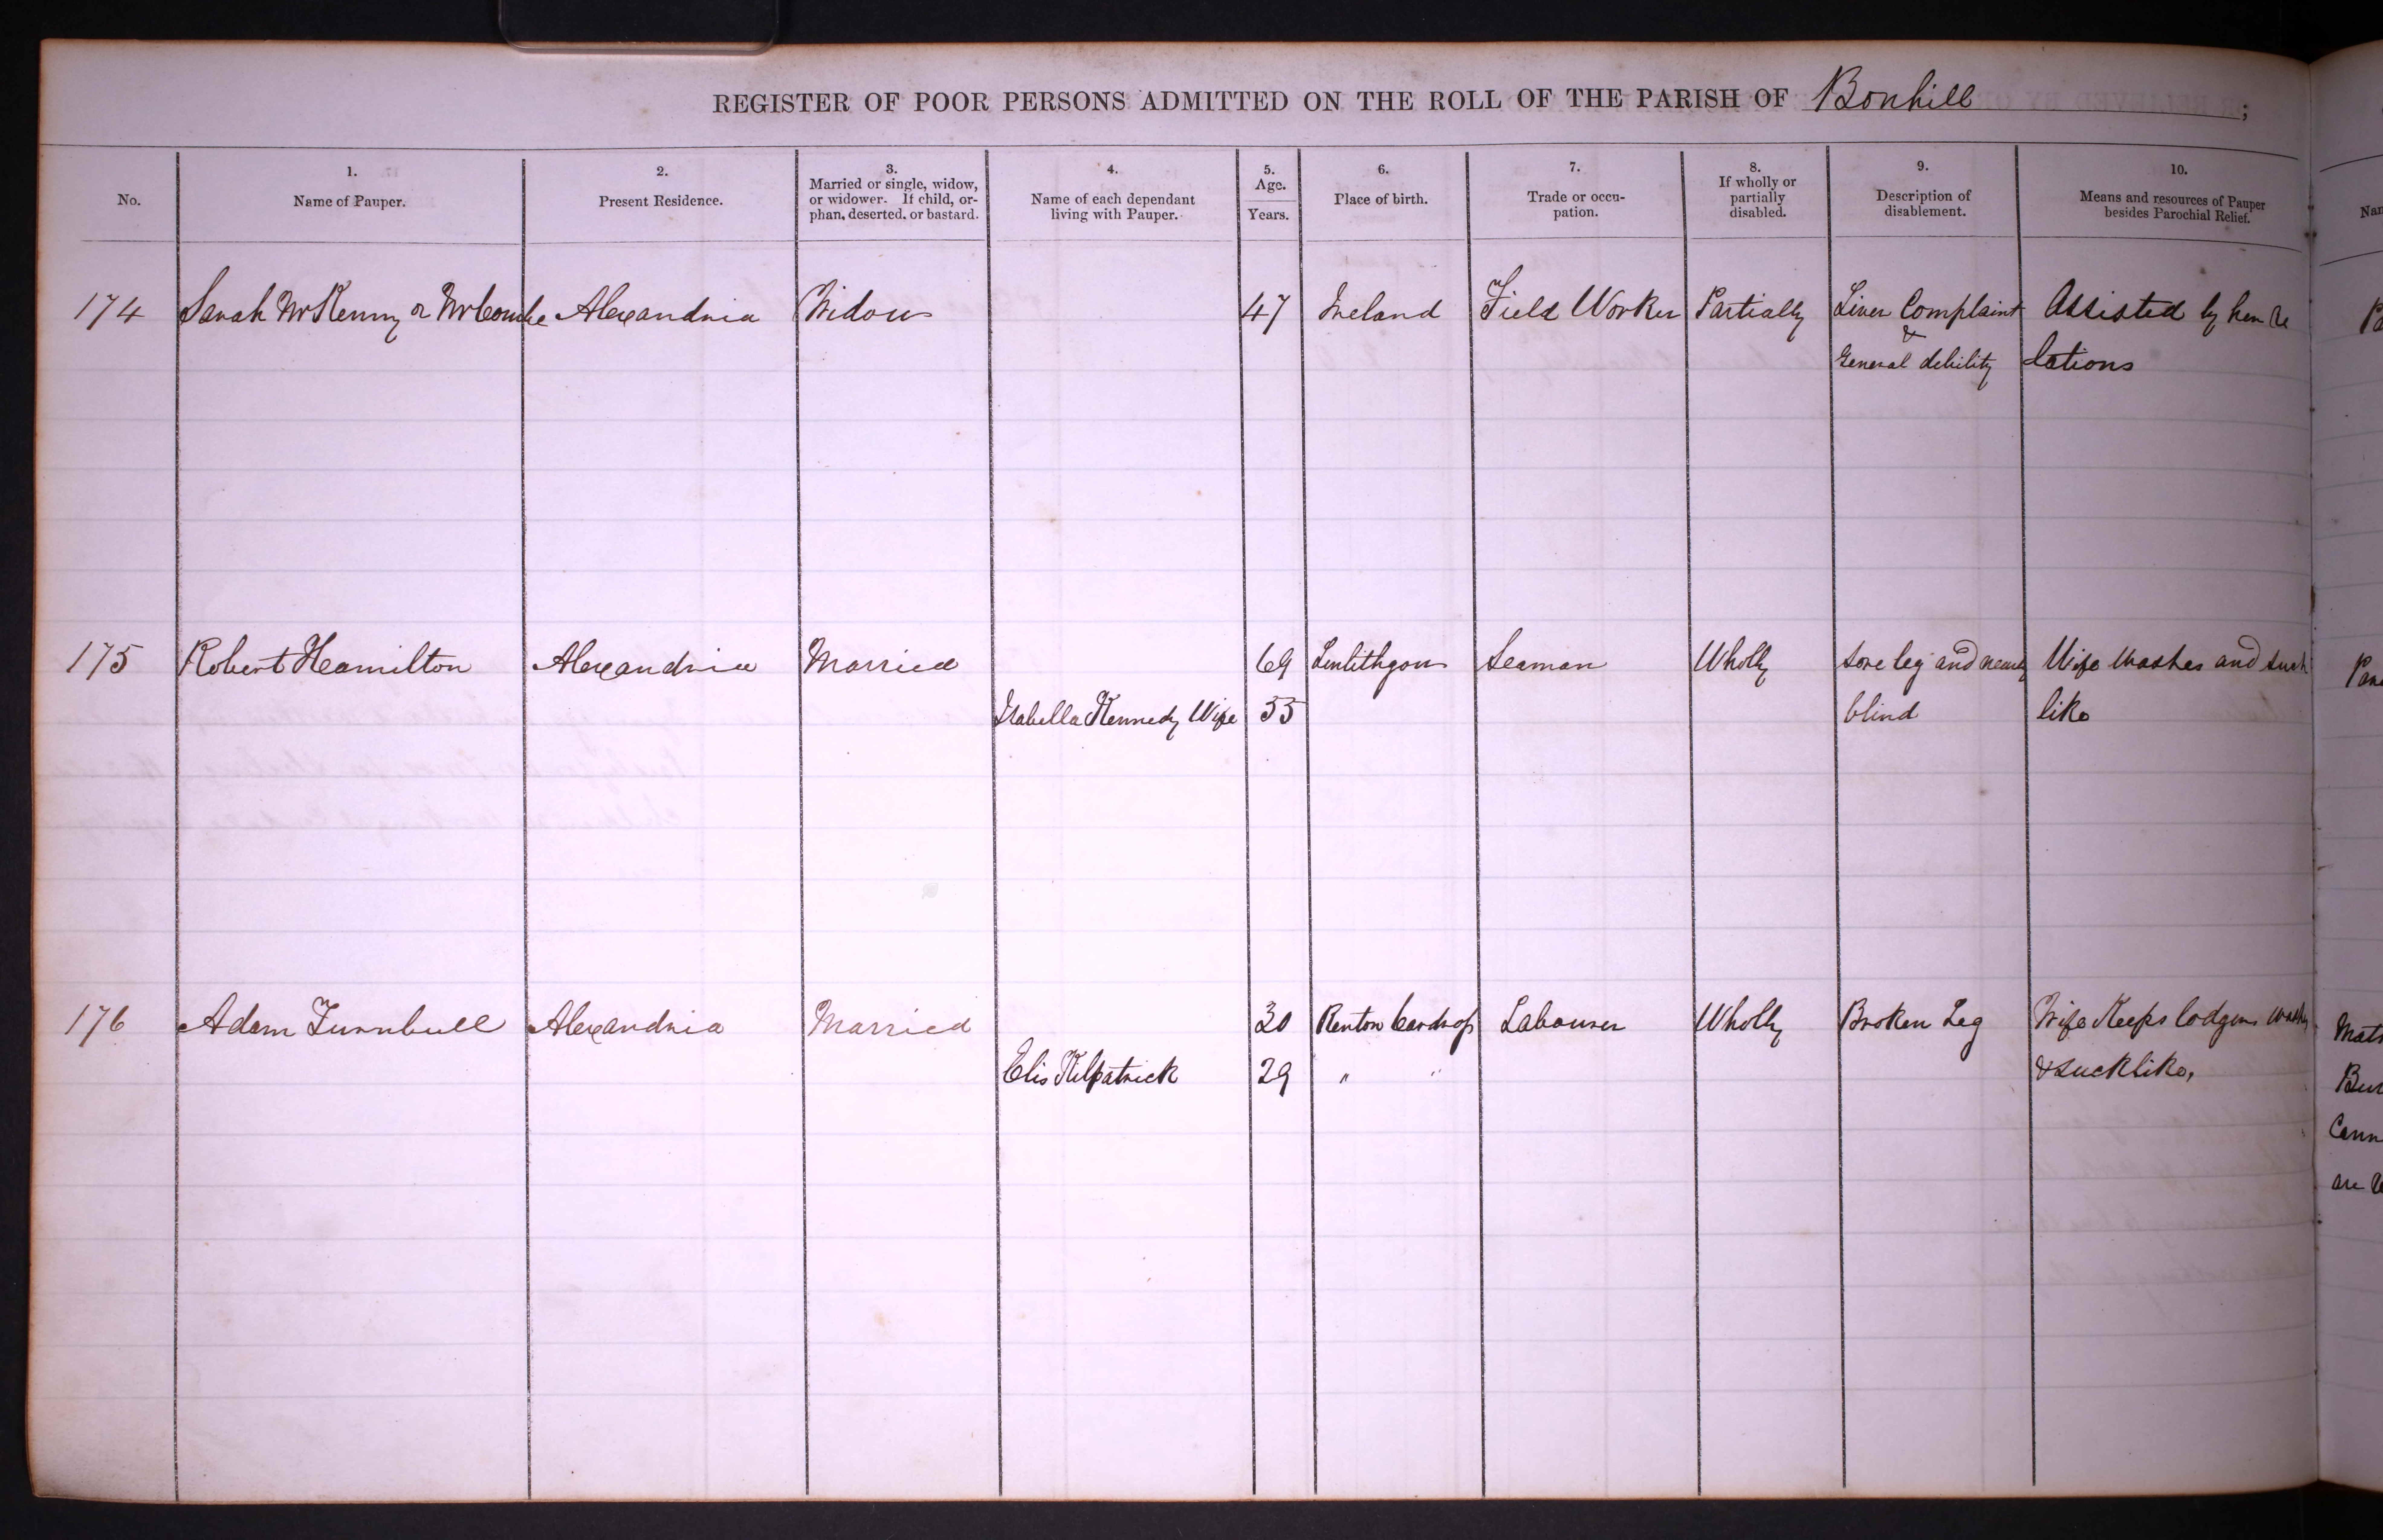 REGISTER OF POOR PERSONS ADMITTED ON THE ROLL OF THE PARISH OF Bonhill ;
No.
1.
Name of Pauper.
2.
Present Residence.
3.
Married or single, widow,
or widower. If child, or-
phan, deserted, or bastard.
4.
Name of each dependant
living with Pauper.
5.
Age.
Years.
6.
Place of birth.
7.
Trade or occu-
pation.
8.
If wholly or
partially
disabled.
9.
Description of
disablement.
10.
Means and resources of Pauper
besides Parochial Relief.
174 Sarah McKenny or McCombe Alexandria Widow 47 Ireland Field Worker Partially Liver Complaint Assisted by her re
&
General debility lations
175 Robert Hamilton Alexandria Married 69 Linlithgow Seaman Wholly Sore leg and nearly Wife Washes and such
Isabella Kennedy Wife 55 blind like
176 Adam Turnbull Alexandria Married 30 Renton Cardross Labourer Wholly Broken Leg Wife Keeps lodgers
Elis Kilpatrick 29 " " & sucklike,